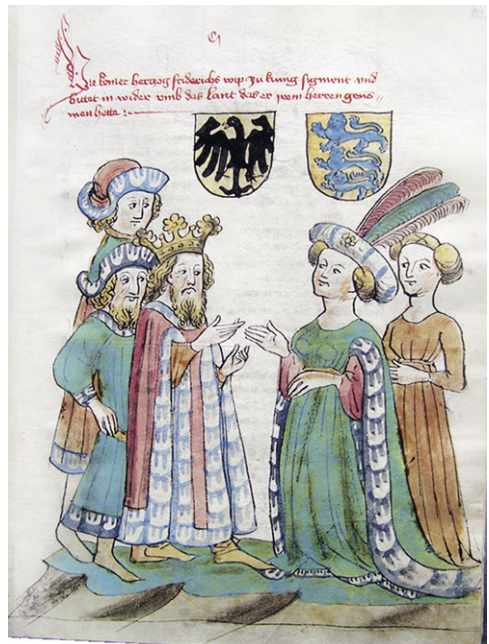 Hie komet herczog fridrichs wip zu kung sigmont und
bittet in wider umb das lant das er irem herren genō
men hette :